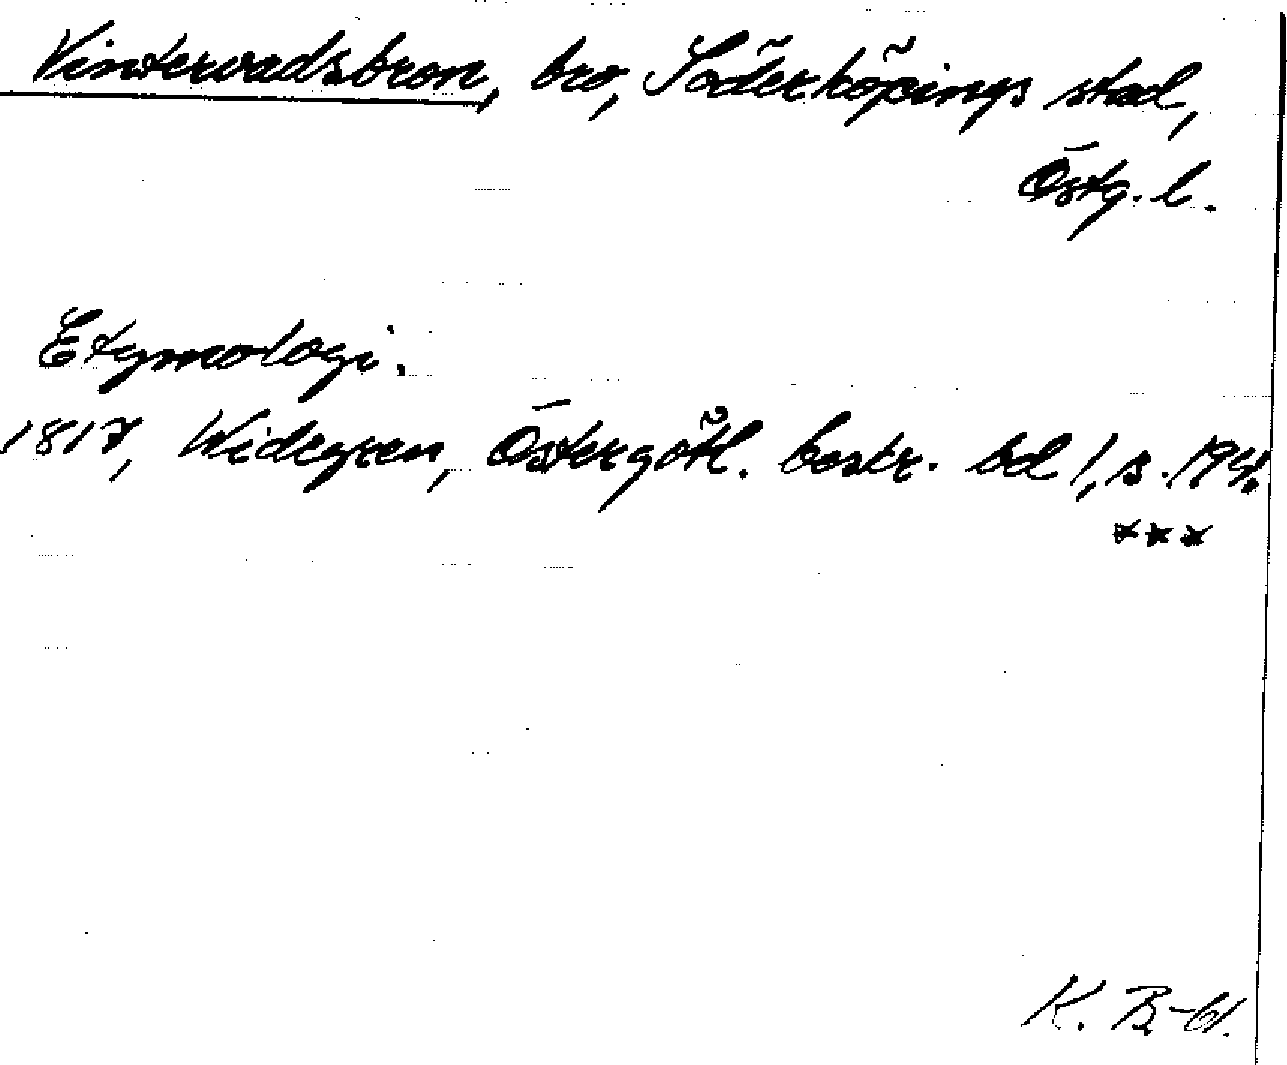 Vintervadsbron, bro, Söderköpings stad,
Östg. l.
Etymologi.
1817, Widegren, Östergötl. beskr. bd 1, s. 194.
***
K. B-